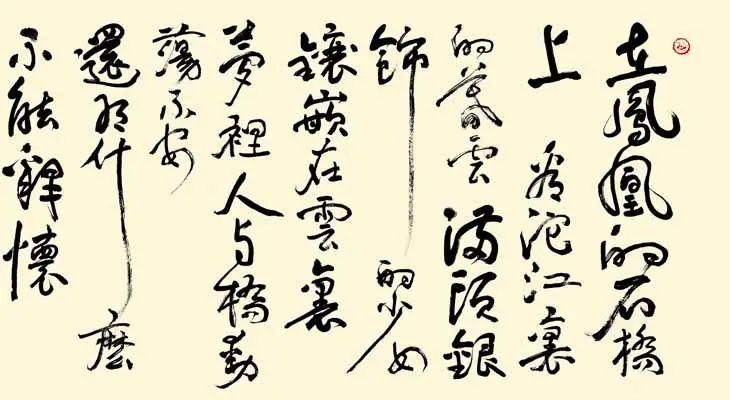 在鳳凰的石橋
上 看沱江裏
的暮雲 滿頭銀
飾 的少女
鑲嵌在雲裏
夢裡 人与橋動
蕩不安
還有什麼
不能釋懷